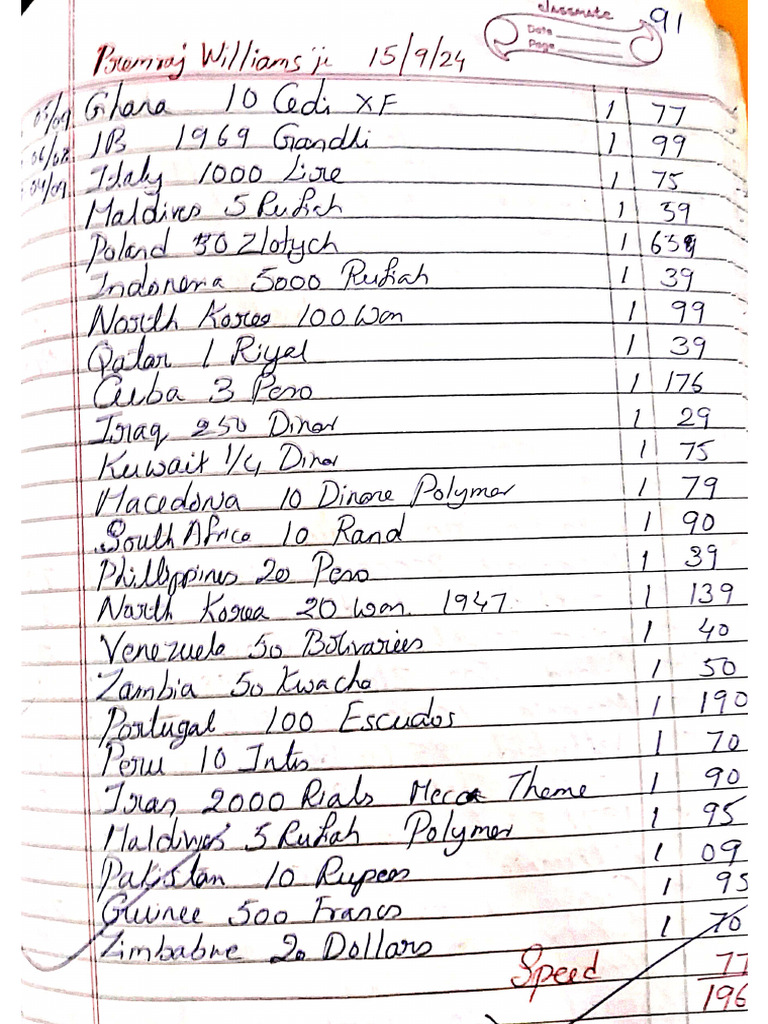 classmate
91
Date
Page
Premraj Williams ji 15/9/24
05/09 Ghana 10 Cedi XF 1 77
06/08 1B 1969 Gandhi 1 99
04/09 Italy 1000 Lire 1 75
Maldives 5 Rufiah 1 39
Poland 50 Zlotych 1
Indonesia 5000 Rufiah 1 39
North Korea 100 Won 1 99
Qatar 1 Riyal 1 39
Cuba 3 Peso 1 176
Iraq 250 Dinar 1 29
Kuwait 1/4 Dinar 1 75
Macedonia 10 Dinare Polymer 1 79
South Africa 10 Rand 1 90
Phillippines 20 Peso 1 39
North Korea 20 Won 1947 1 139
Venezuela 50 Bolivares 1 40
Zambia 50 Kwacha 1 50
Portugal 100 Escudos 1 190
Peru 10 Intis 1 70
Iran 2000 Rials Mecca Theme 1 90
Maldives 5 Rufiah Polymer 1 95
Pakistan 10 Rupees 1 09
Guinee 500 Francs 1 95
Zimbabwe 20 Dollars 1 70
Speed 77
196